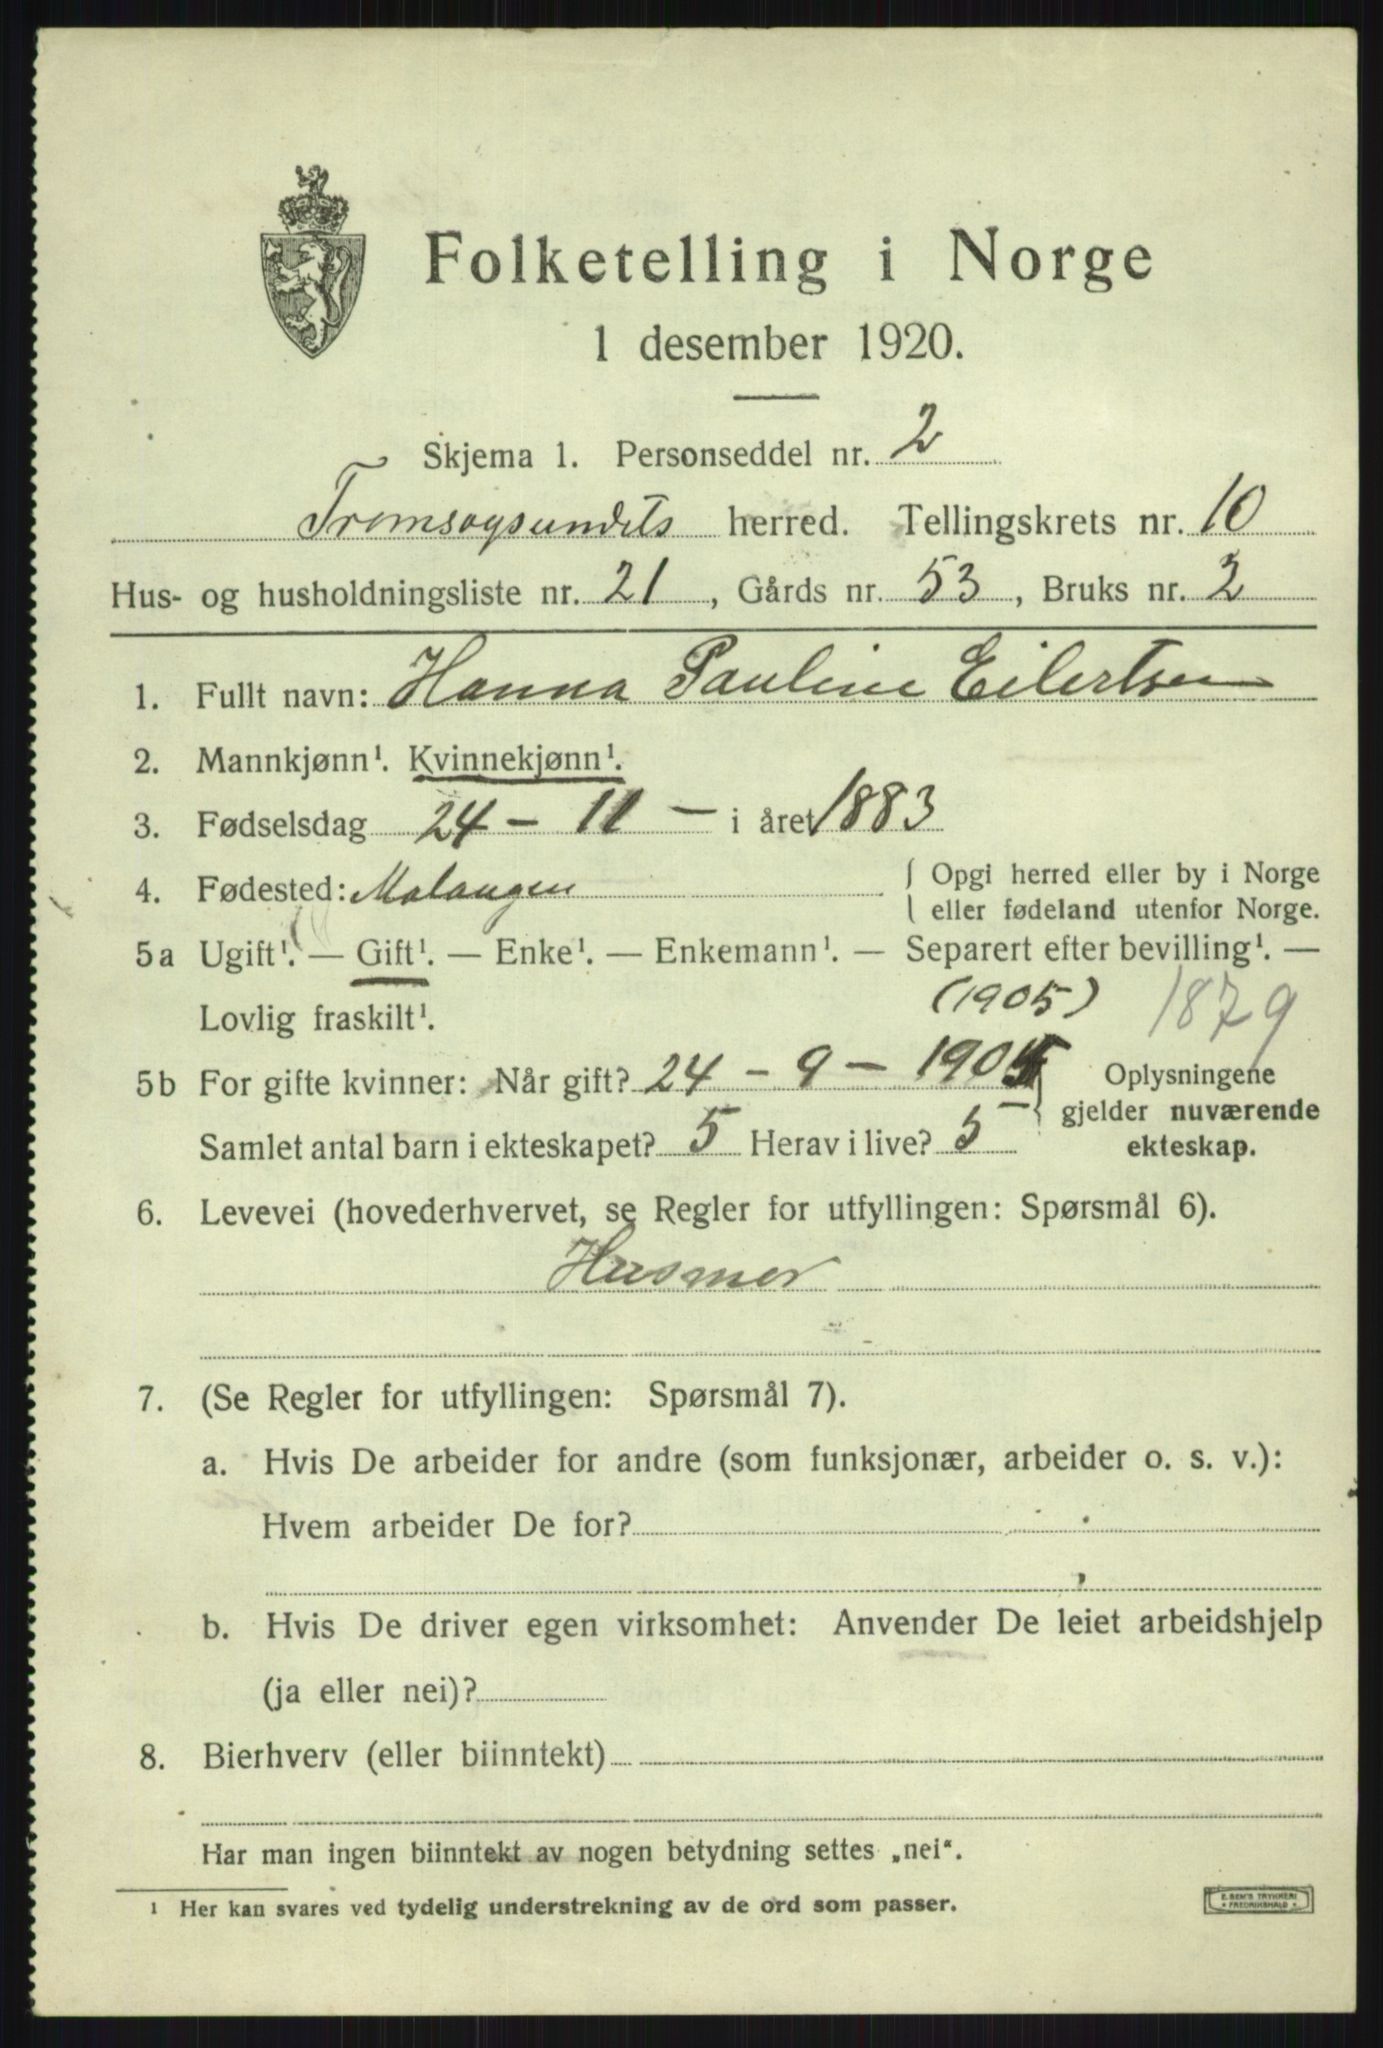 Folketelling i Norge
1 desember 1920.
Skjema 1. Personseddel nr. 2
Tromsøysundets herred. Tellingskrets nr. 10
Hus- og husholdningsliste nr. 21, Gårds nr. 53, Bruks nr. 2
1. Fullt navn: Hanna Pauline Eilertsen
2. Mannkjønn¹. Kvinnekjønn¹.
3. Fødselsdag 24 - 11 - i året 1883
4. Fødested: Malangen { Opgi herred eller by i Norge
eller fødeland utenfor Norge.
5a Ugift¹. — Gift¹. — Enke¹. — Enkemann¹. — Separert efter bevilling¹. —
Lovlig fraskilt¹. (1905) 1879
5b For gifte kvinner: Når gift? 24 - 9 - 1905 } Oplysningene
gjelder nuværende
Samlet antal barn i ekteskapet? 5 Herav i live? 5 ekteskap.
6. Levevei (hovederhvervet, se Regler for utfyllingen: Spørsmål 6).
Husmor
7. (Se Regler for utfyllingen: Spørsmål 7).
a. Hvis De arbeider for andre (som funksjonær, arbeider o. s. v.):
Hvem arbeider De for?
b. Hvis De driver egen virksomhet: Anvender De leiet arbeidshjelp
(ja eller nei)?
8. Bierhverv (eller biinntekt)
Har man ingen biinntekt av nogen betydning settes „nei“.
¹ Her kan svares ved tydelig understrekning av de ord som passer.
E. SEM'S TRYKKERI
FREDRIKSHALD